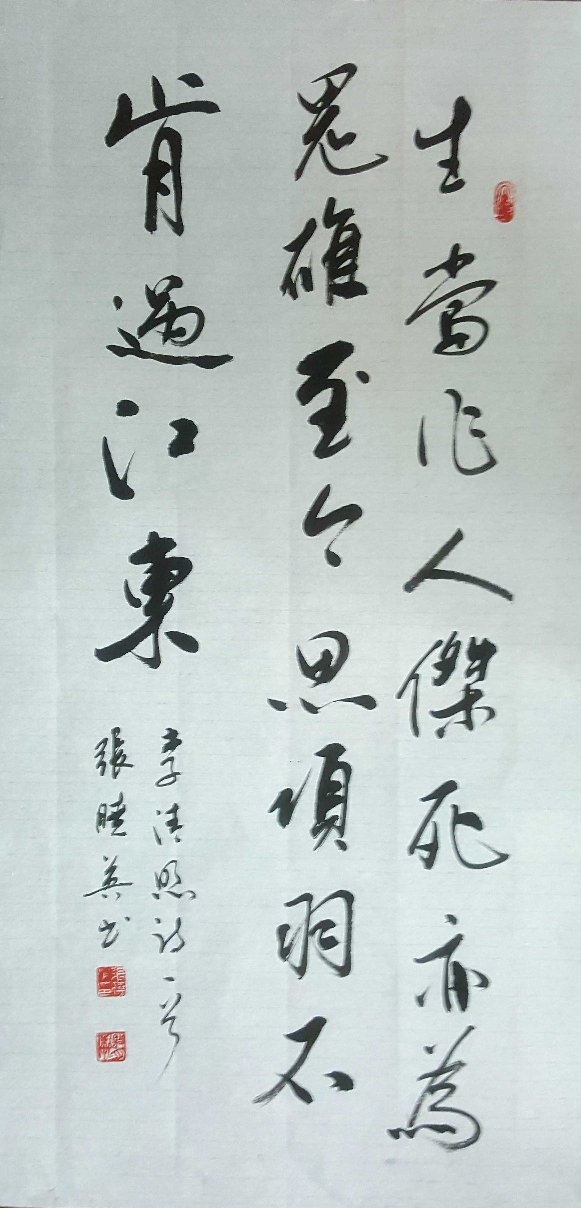 生當作人傑死亦為
鬼雄至今思項羽不
肯過江東
李清照詩一首
張曉英書